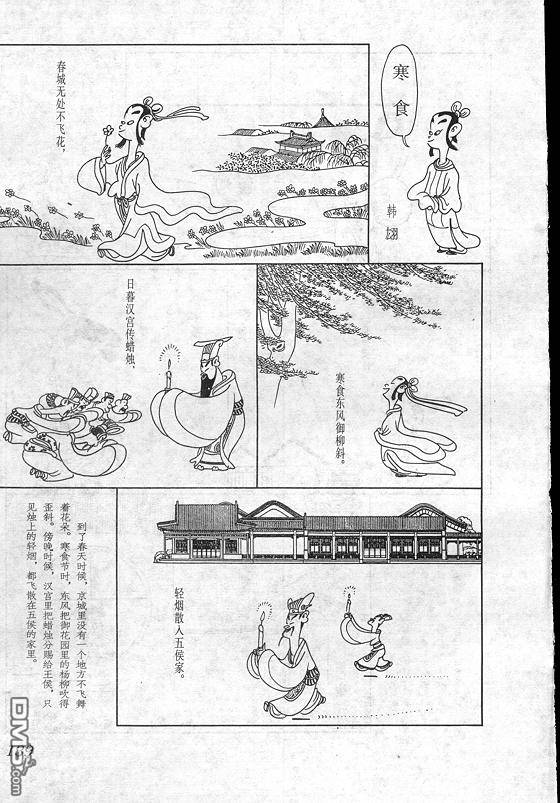 寒食
韩翃
春城无处不飞花，
寒食东风御柳斜。
日暮汉宫传蜡烛，
轻烟散入五侯家。
到了春天时候，京城里没有一个地方不飞舞
着花朵。寒食节时，东风把御花园里的杨柳吹得
歪斜。傍晚时候，汉宫里把蜡烛分赐给王侯，只
见烛上的轻烟，都飞散在五侯的家里。
DM5.com